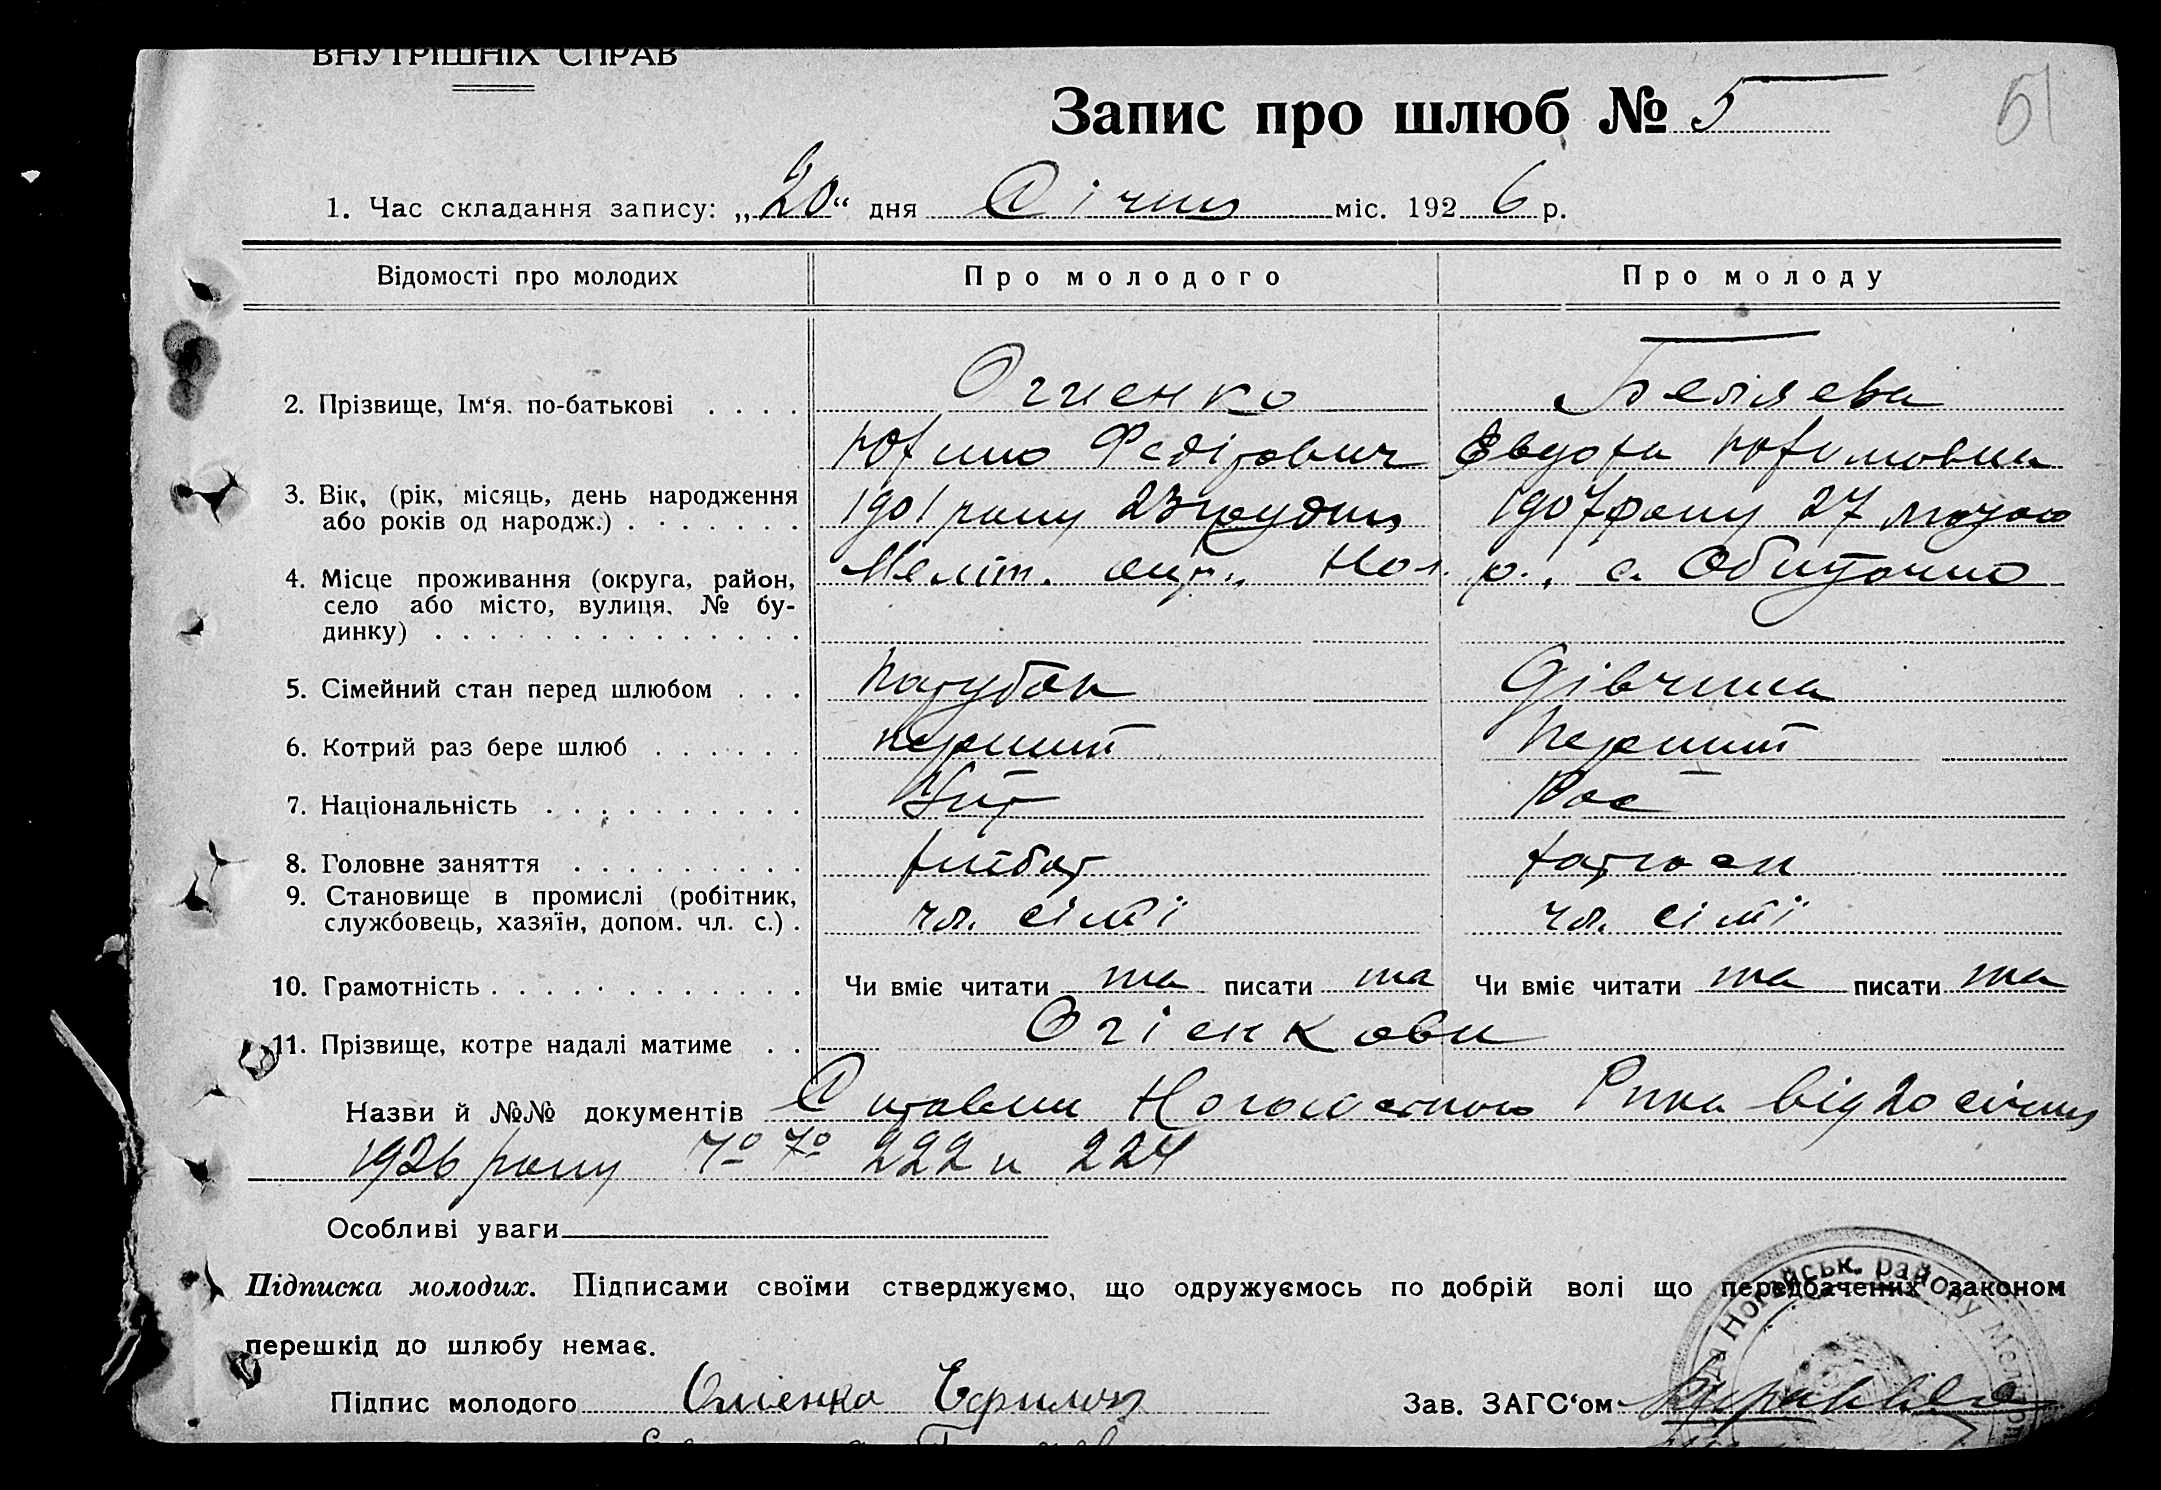 ВНУТРІШНІХ СПРАВ
Запис про шлюб № 5
51
1. Час складання запису: „20“ дня Січня міс. 1926 р.
Відомості про молодих Про молодого Про молоду
2. Прізвище, Ім‘я. по-батькові . . . . Огиенко Беляева
Юхим Федорович Евдоха Юхимовна
3. Вік, (рік, місяць, день народження 1901 року 23 грудня 1907 року 27 лютого
або років од народж.) . . . . . . .
4. Місце проживання (округа, район, Меліт. окр., Ног. р., с. Обиточно
село або місто, вулиця, № бу-
динку) . . . . . . . . . . . . . .
5. Сімейний стан перед шлюбом . . . Парубок Дівчина
6. Котрий раз бере шлюб . . . . . . перший Перший
7. Національність . . . . . . . . . . Укр Рос
8. Головне заняття . . . . . . . . . хлібор
9. Становище в промислі (робітник, чл. сімї чл. сімї
службовець, хазяїн, допом. чл. с.) .
10. Грамотність . . . . . . . . . . . . Чи вміє читати та писати та Чи вміє читати та писати та
11. Прізвище, котре надалі матиме . . Огієнкови
Назви й №№ документів Справки Рика від 20 січня
1926 року №№ 222 и 224
Особливі уваги
Підписка молодих. Підписами своїми стверджуємо, що одружуємось по добрій волі що передбачених законом
перешкід до шлюбу немає.
Ногайськ. району
Підпис молодого Огиенко Ефим Зав. ЗАГС‘ом